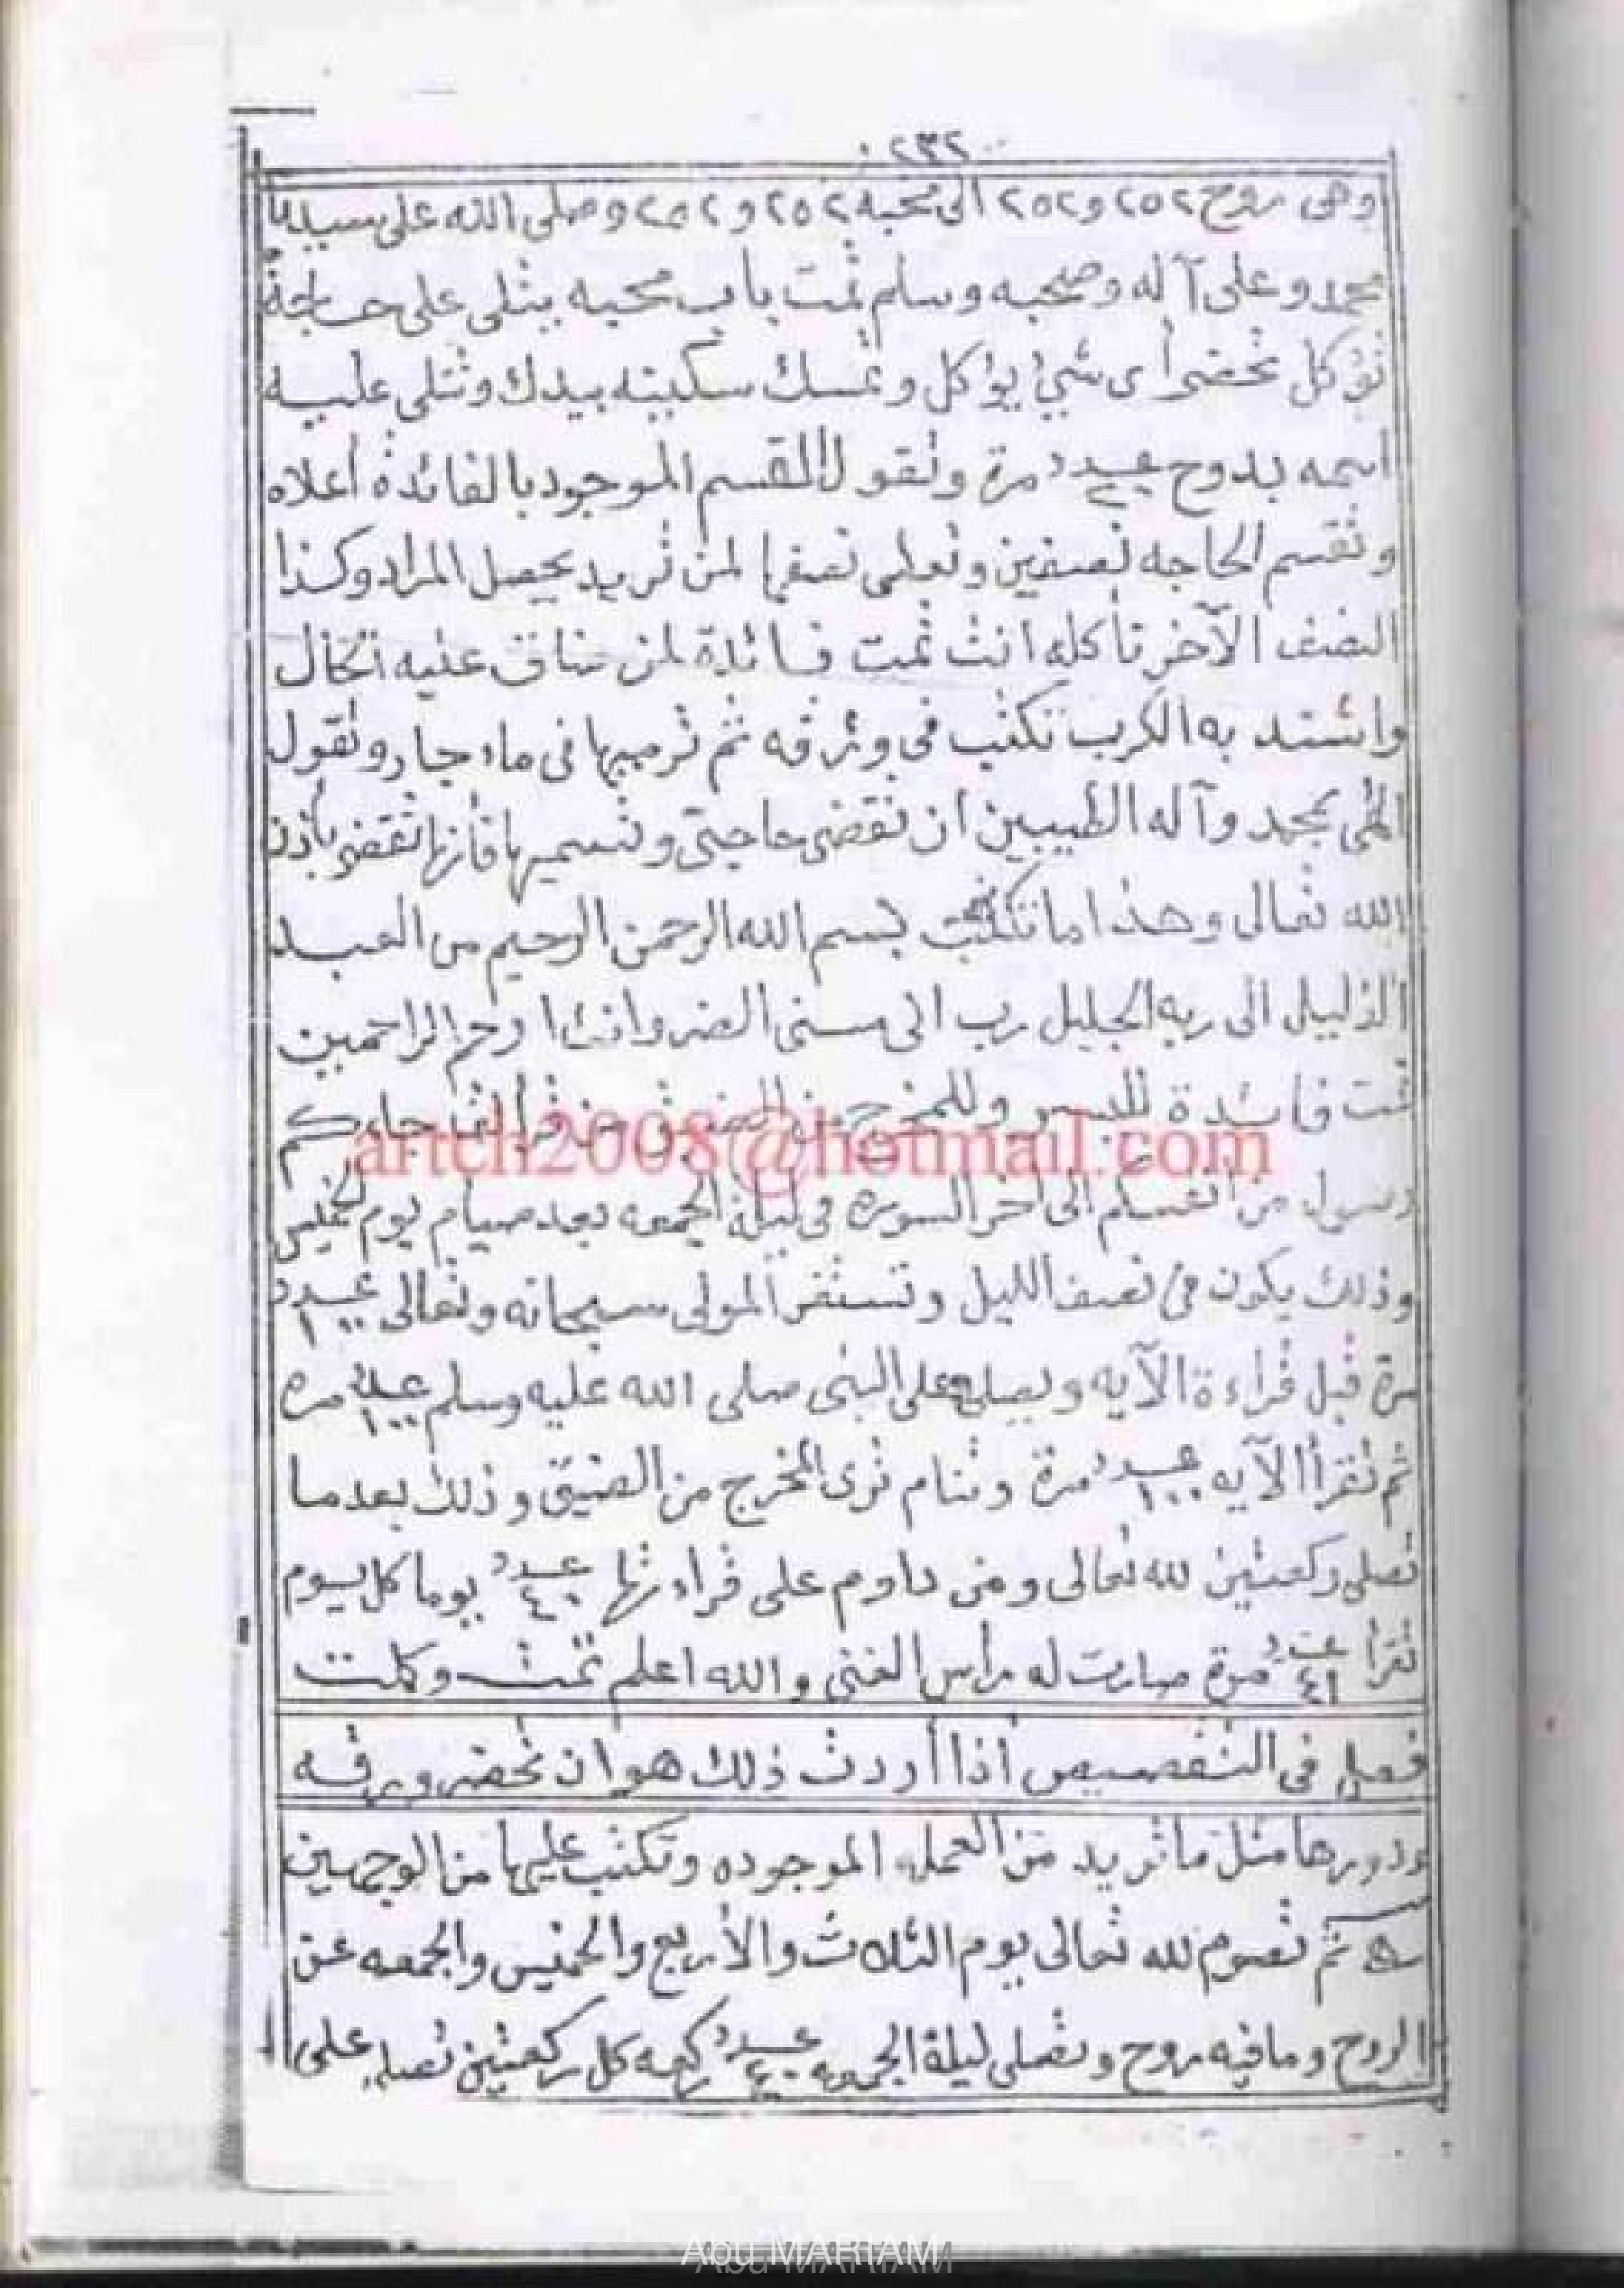 ٢٣٢
وهى روح ٢٥٢ و ٢٥٢ الى محبه ٢٥٢ و ٢٥٢ وصلى الله على سيدنا
محمد وعلى آله وصحبه وسلم تمت باب محبه يتلى على حاجة
تؤكل تحضر أى شئ يؤاكل وتمسك سكينه بيدك وتتلى عليه
اسمه بدوح عدد مرة وتقول القسم الموجود بالفائدة أعلاه
وتقسم الحاجه نصفين وتعطى نصفها لمن تريد يحصل المراد وكذا
النصف الآخر تأكله انت تمت فائدة لمن ضاق عليه الحال
واشتد به الكرب تكتب فى ورقه ثم ترميها فى ماء جار وتقول
الهى بمحمد وآله الطيبين ان تقضى حاجتى وتسميها فأنها تقضى بأذن
الله تعالى وهذا ما تكتب بسم الله الرحمن الرحيم من العبد
الذليل الى ربه الجليل رب انى مسنى الضر وانت ارحم الراحمين
تمت فائدة لليسر وللمخرج من الضيق من قرأ لقد جاءكم
رسول من انفسكم الى اخر السوره فى ليلة الجمعه بعد صيام يوم الخميس
وذلك يكون فى نصف الليل وتستغفر المولى سبحانه وتعالى عدد ١٠٠
مرة قبل قراءة الآيه ويصلى على النبى صلى الله عليه وسلم عدد ١٠٠ مره
ثم تقرأ الآيه عدد ١٠٠ مرة وتنام ترى المخرج من الضيق وذلك بعدما
تصلى ركعتين لله تعالى ومن داوم على قراءتها عدد ٤٠ يوما كل يوم
تقرأ عدد ٤١ مرة صارت له رأس الغنى والله اعلم تمت وكملت
فصل فى التقصيص أذا أردت ذلك هو ان تحضر ورقه
ودورها مثل ما تريد من العمله الموجوده وتكتب عليها من الوجهين
ثم تصوم لله تعالى يوم الثلاث والأربع والخميس والجمعه عن
الروح وما فيه روح وتصلى ليلة الجمعه عدد ٤٠ ركعه كل ركعتين تصلى على
artch2008@hotmail.com
Abu MARIAM